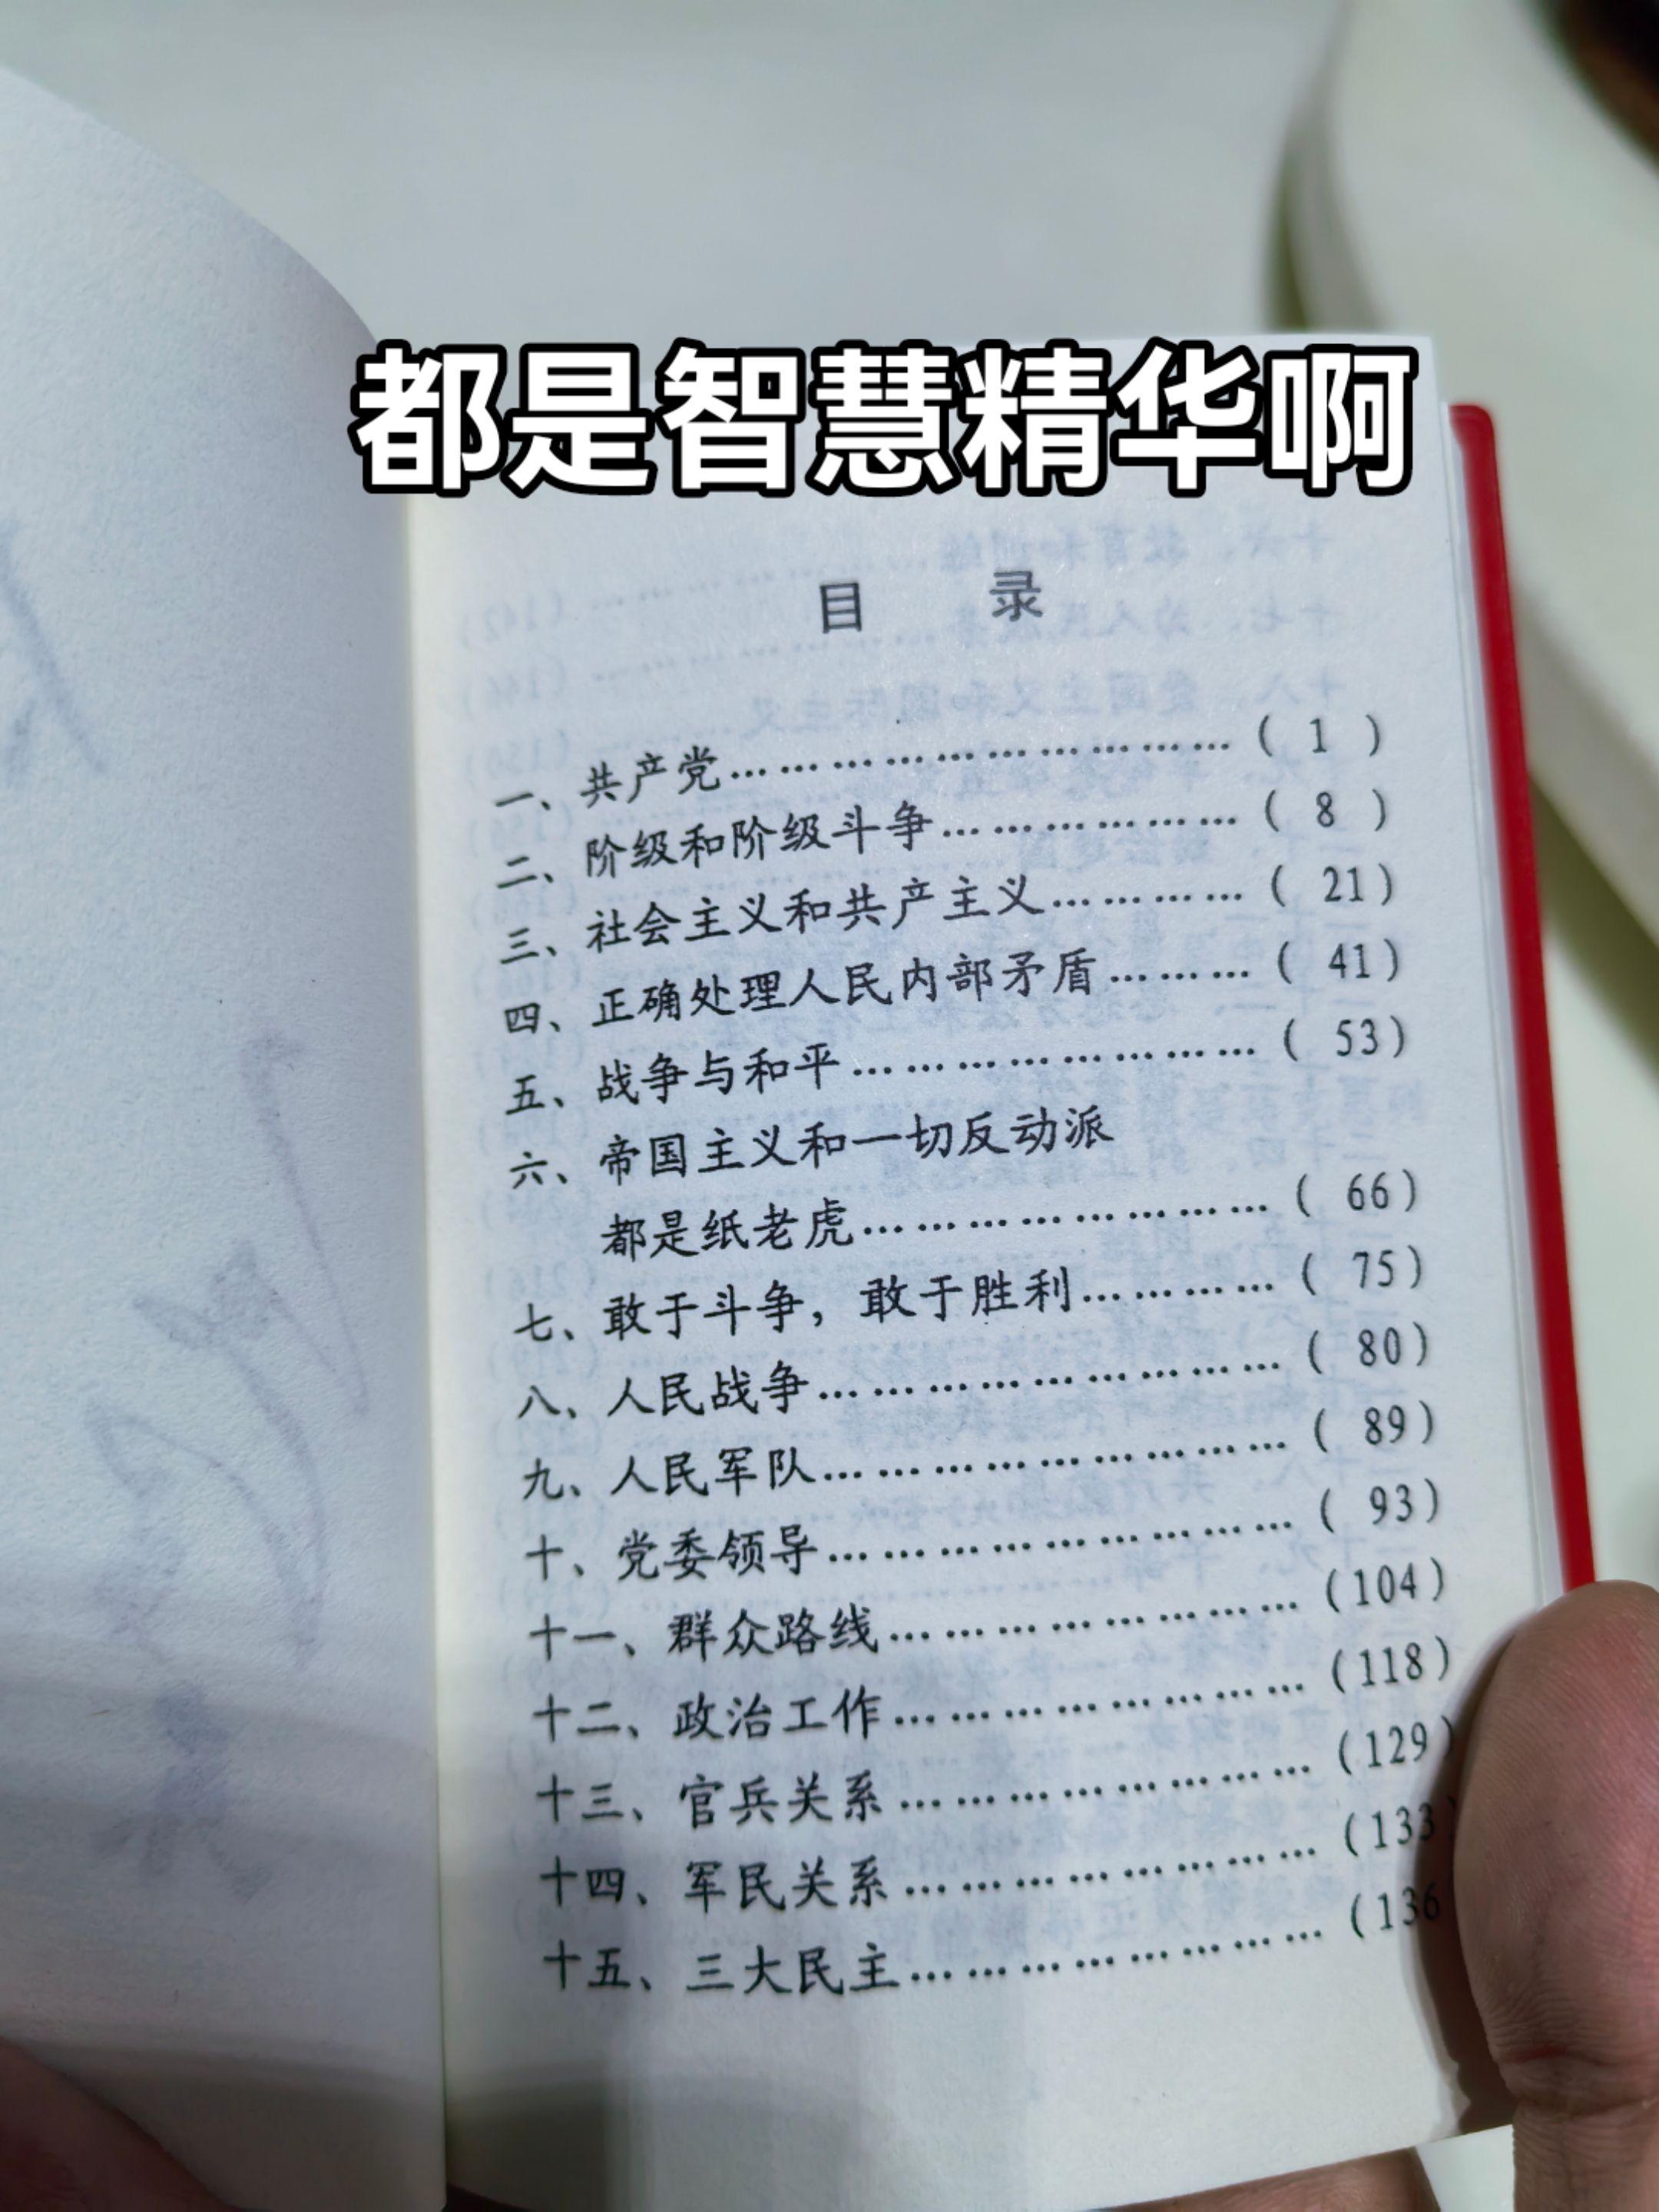 都是智慧精华啊
目 录
一、共产党………………………………( 1 )
二、阶级和阶级斗争…………………( 8 )
三、社会主义和共产主义…………( 21)
四、正确处理人民内部矛盾………( 41)
五、战争与和平………………………( 53)
六、帝国主义和一切反动派
都是纸老虎………………………( 66)
七、敢于斗争，敢于胜利…………( 75)
八、人民战争…………………………( 80)
九、人民军队…………………………( 89)
十、党委领导…………………………( 93)
十一、群众路线………………………(104)
十二、政治工作………………………(118)
十三、官兵关系………………………(129)
十四、军民关系………………………(133)
十五、三大民主………………………(136